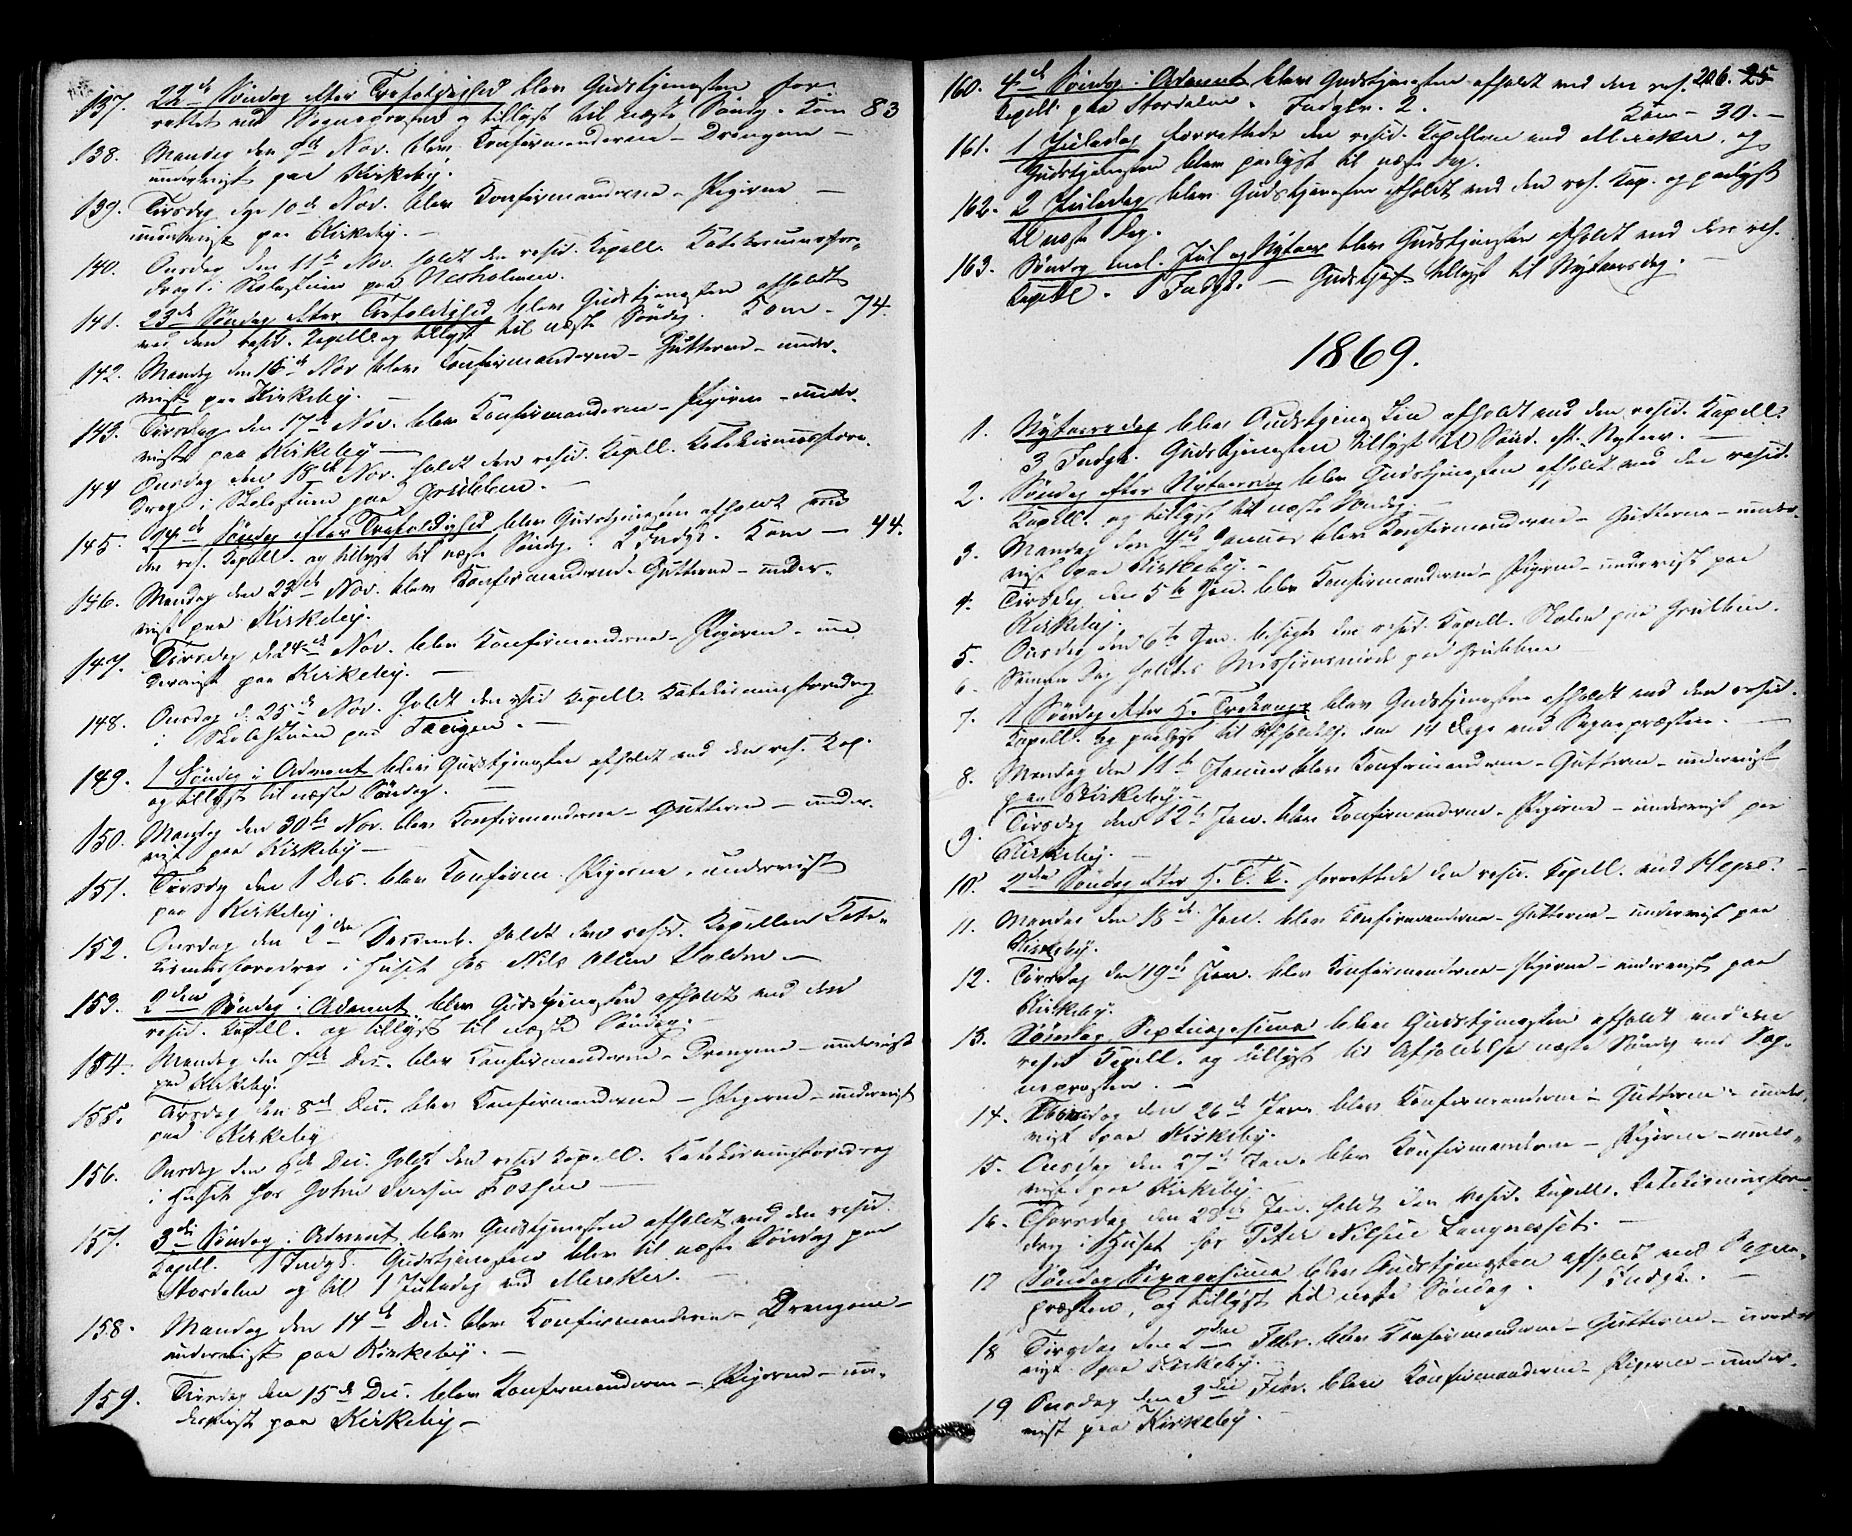 137. 22de Søndag efter Trefoldighed blev Gudstjenesten for-
rettet ved Sognepræsten og tillyst til næste Søndag. Kom 83
138. Mandag den 9de Nov. blev Konfirmanderne - Drengene -
undervist paa Kirkeby.
139. Tirsdag den 10de Nov. blev Konfirmanderne - Pigerne -
undervist paa Kirkeby. -
140. Onsdag den 11te Nov. holdt den resid. Kapell. Katekismusfor-
drag i Skolestuen paa
141. 23de Søndag efter Trefoldighed blev Gudstjenesten afholdt
ved den resid. Kapell. og tillyst til næste Søndag. Kom - 74.
142. Mandag den 16de Nov blev Konfirmanderne - Gutterne - under-
vist paa Kirkeby. -
143. Tirsdag den 17de Nov. blev Konfirmanderne - Pigerne - under-
vist paa Kirkeby -
144 Onsdag den 18de Nov. holdt den resid. Kapell. Katekismusfore-
drag i Skolestuen paa Gribben. -
145. 24de Søndag efter Trefoldighed blev Gudstjenesten afholdt ved
den res. Kapell. og tillyst til næste Søndag. 2 Indgk. Kom - 44.
146. Mandag den 23de Nov. blev Konfirmanderne - Gutterne - under-
vist paa Kirkeby.
147. Tirsdag d. 24de Nov. blev Konfirmanderne - Pigerne - un
dervist paa Kirkeby. -
148. Onsdag d. 25de Nov. holdt den resid Kapell. Katekismusforedrag
i Skolestuen paa
149. 1 Søndag i Advent blev Gudstjenesten afholdt ved den res. Kap.
og tillyst til næste Søndag. -
150. Mandag den 30te Nov. blev Konfirmanderne - Gutterne - under-
vist paa Kirkeby -
151. Tirsdag den 1 Dec. blev Konfirm. Pigerne - undervist
paa Kirkeby.
152. Onsdag den 2den Decemb. holdt den resid. Kapellan Kate-
kismusforedrag i Huset hos Nils Olsen -
153. 2den Søndag i Advent blev Gudstjenesten afholdt ved den
resid. Kapell. og tillyst til næste Søndag. -
154. Mandag den 7de Dec. blev Konfirmanderne - Drengene - undervist
paa Kirkeby.
155. Tirsdag den 8de Dec. blev Konfirmanderne - Pigerne - undervist
paa Kirkeby
156. Onsdag den 9de Dec. holdt den resid Kapell. Katekismusforedrag
i Huset hos John Iversen Fossen -
157. 3die Søndag i Advent blev Gudstjenesten afholdt ved den resid.
Kapell. 1 Indgk. Gudstjenesten blev til næste Søndag paa
Stordalen og til 1 Juledag ved Meraker. -
158. Mandag den 14de Dec. blev Konfirmanderne - Drengene -
undervist paa Kirkeby. -
159. Tirsdag den 15de Dec. blev Konfirmanderne - Pigerne - un-
dervist paa Kirkeby -
206. 25
160. 4de Søndag i Advent blev Gudstjenesten afholdt ved den res.
Kapell. paa Stordalen. Indgk. 2. Kom - 30. -
161. 1 Juledag forrettede den resid. Kapellan ved Meraker, og
Gudstjenesten blev paalyst til næste Dag.
162. 2 Juledag blev Gudstjenesten afholdt ved den res. Kap. og paalyst
til næste Dag.
163. Søndag mel. Jul og Nytaar blev Gudstjenesten afholdt ved den res.
Kapell. 1 Indgk. - Gudstjenst tillyst til Nytaarsdag. -
1869.
1. Nytaarsdag blev Gudstjenesten afholdt ved den resid. Kapell.
3 Indgk. Gudstjenesten tillyst til Sønd. eft. Nytaar. -
2. Søndag efter Nytaarsdag blev Gudstjenesten afholdt ved den resid.
Kapell. og tillyst til næste Søndag. -
3. Mandag den 4de Januar blev Konfirmanderne - Gutterne - under-
vist paa Kirkeby. -
4. Tirsdag den 5te Jan. blev Konfirmanderne - Pigerne - undervist paa
Kirkeby.
5. Onsdag den 6te Jan. besøgte den resid. Kapell. Skolen paa Gribben.
6. Samme Dag holdtes Missionsmøde paa Gribben -
7. 1 Søndag efter H. Trekonger blev Gudstjenesten afholdt ved den resid.
Kapell. og paalyst til Afholdelse om 14 Dage ved Sognepræsten. -
8. Mandag den 11te Januar blev Konfirmanderne - Gutterne - undervist
paa Kirkeby. -
9. Tirsdag den 12te Jan. blev Konfirmanderne - Pigerne - undervist paa
Kirkeby. -
10. 2den Søndag efter H. T. K. forrettede den resid. Kapell. ved Hegre. -
11. Mandag den 18de Jan. blev Konfirmanderne - Gutterne - undervist paa
Kirkeby.
12. Tirsdag den 19de Jan. blev Konfirmanderne - Pigerne - undervist paa
Kirkeby.
13. Søndag Septuagesima blev Gudstjenesten afholdt ved den
resid Kapell. og tillyst til Afholdelse næste Søndag ved Sog-
nepræsten. -
14. Tirsdag den 26de Jan. blev Konfirmanderne - Gutterne - under-
vist paa Kirkeby.
15. Onsdag den 27de Jan. blev Konfirmanderne - Pigerne - under-
vist paa Kirkeby.
16. Thorsdag den 28de Jan. holdt den resid. Kapell. Katekismusfore-
drag i Huset hos Peter Nilsen Langnesset. -
17 Søndag Sexagesima blev Gudstjenesten afholdt ved Sogne-
præsten, og tillyst til næste Søndag. 1 Indgk. -
18 Tirsdag den 2den Febr. blev Konfirmanderne - Gutterne - under
vist paa Kirkeby. -
19 Onsdag den 3die Febr. blev Konfirmanderne - Pigerne - under-
vist paa Kirkeby. -